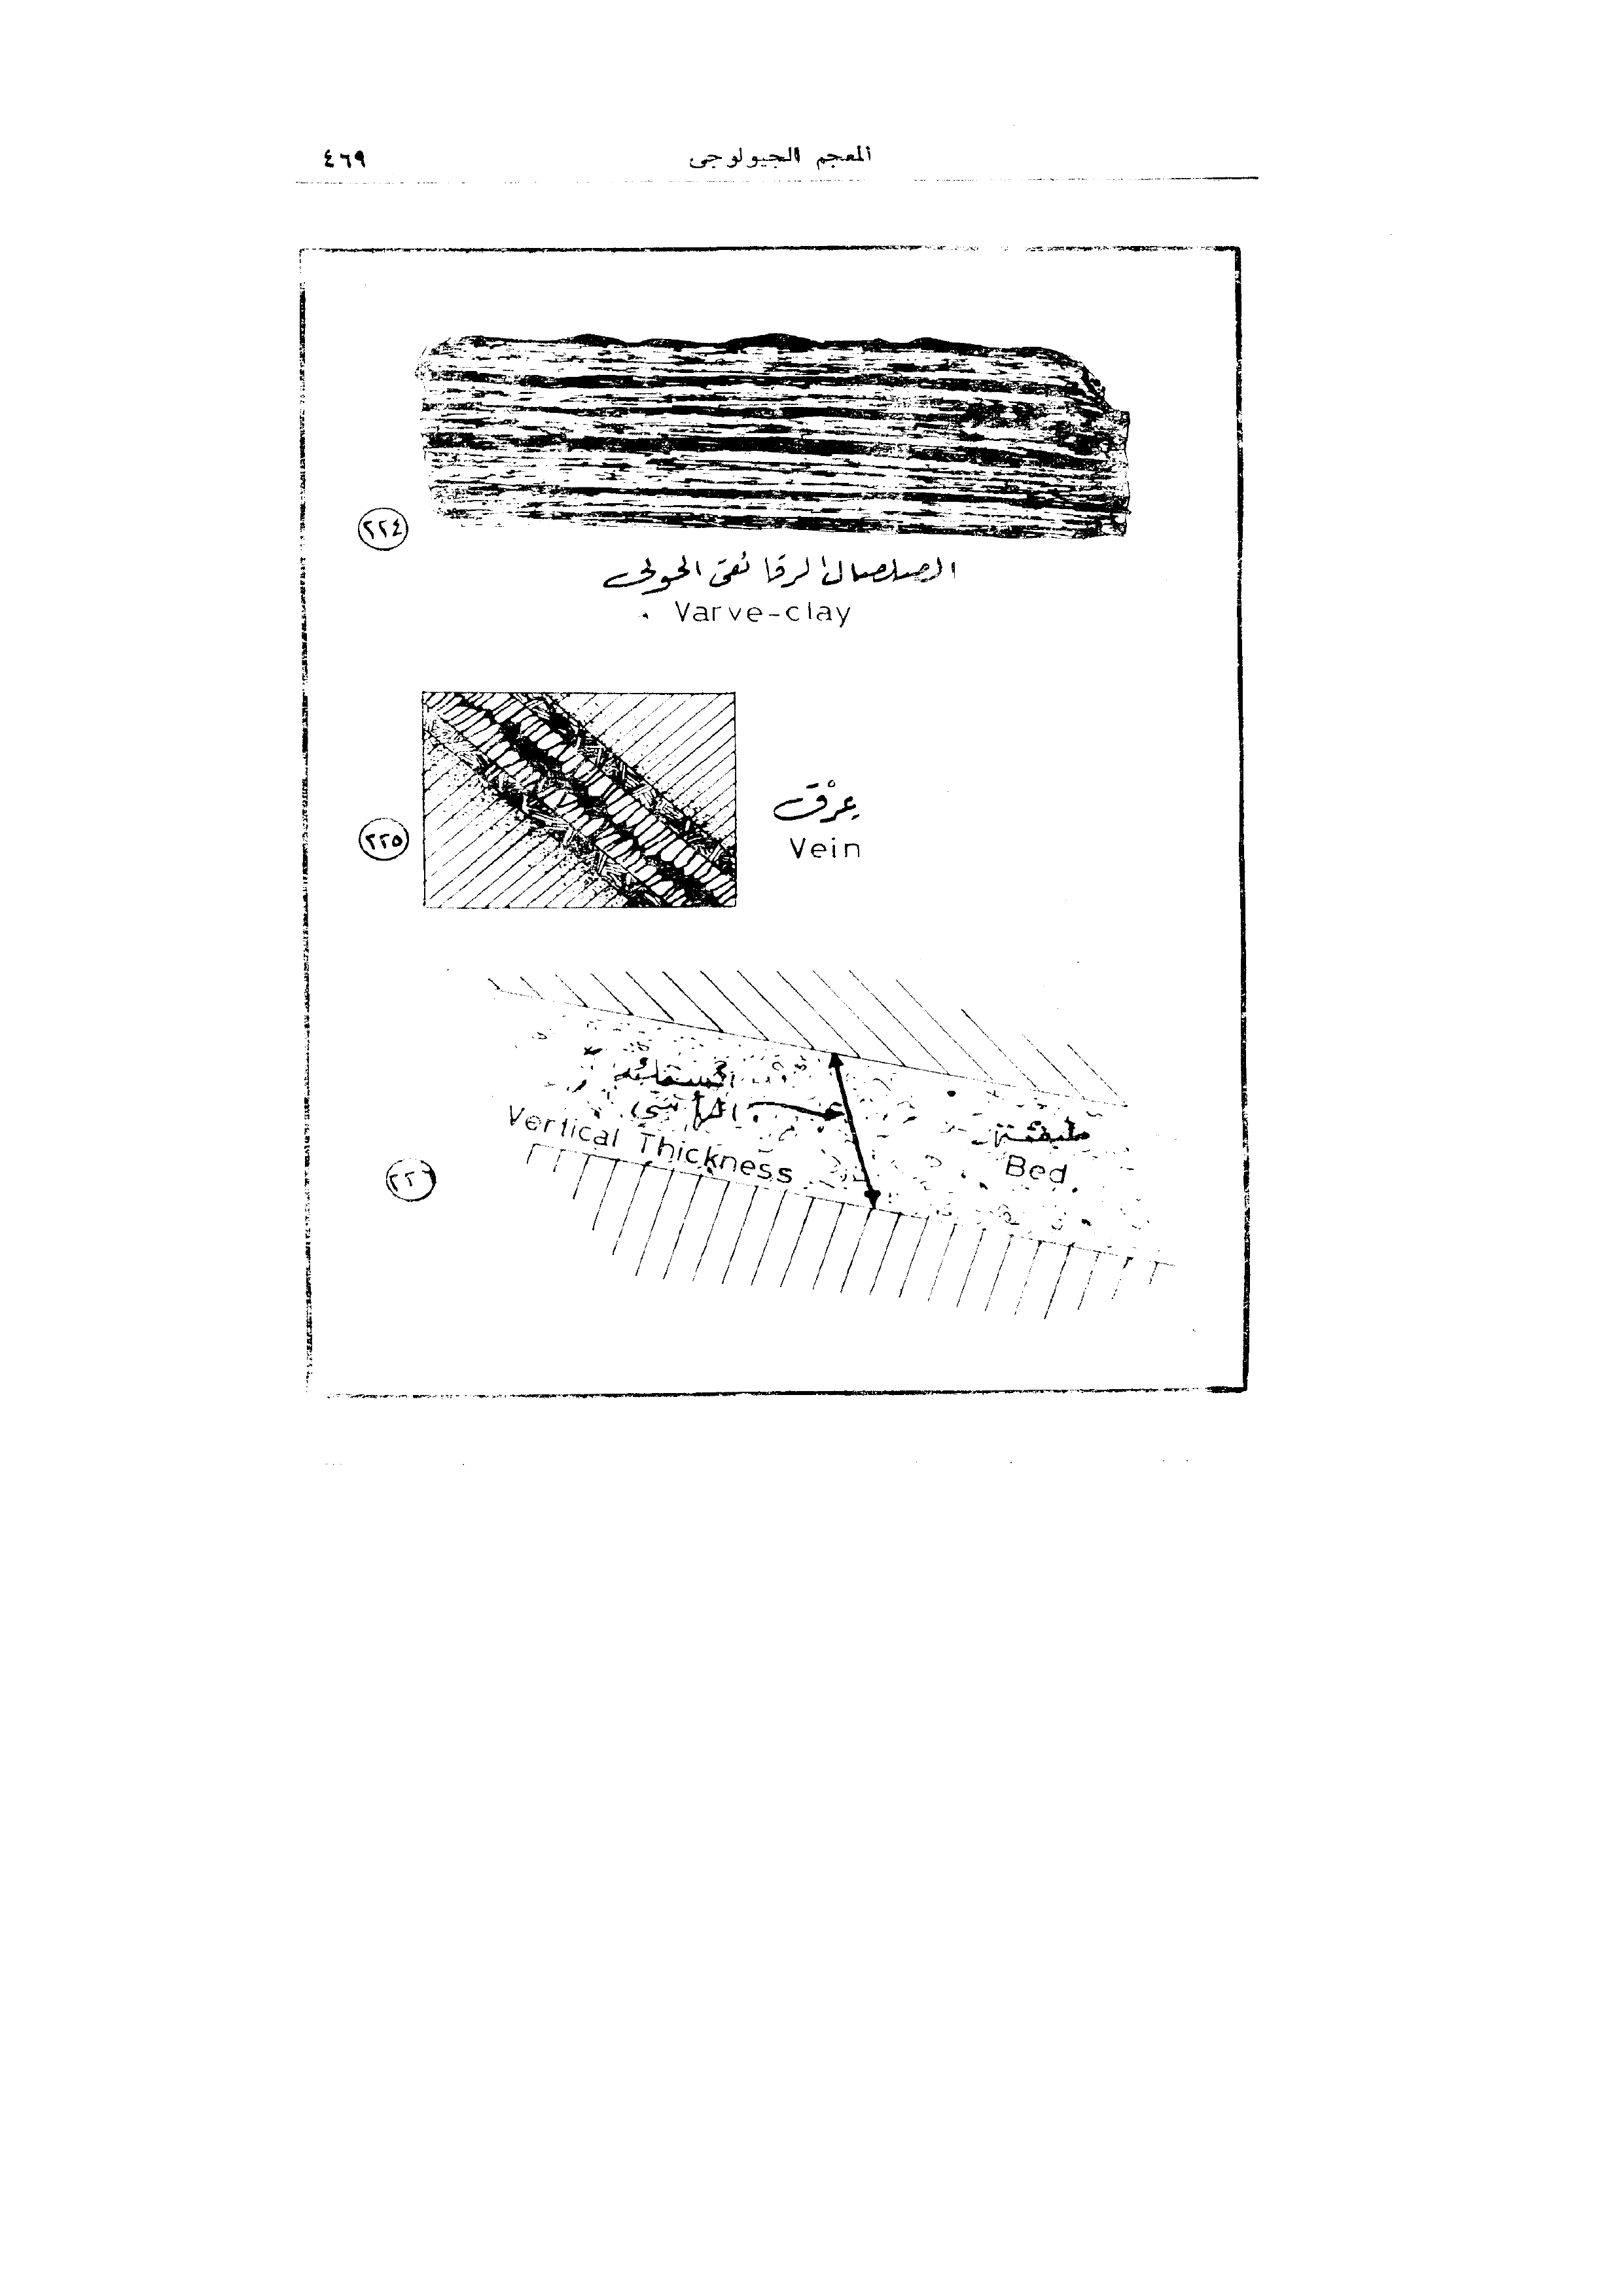 المعجم الجيولوجى
٤٦٩
٢٢٤
الصلصال الرقائقى الحولى
Varve-clay
٢٢٥
عِرْق
Vein
الرأسى
Vertical Thickness
طبقة
Bed
٢٢٦